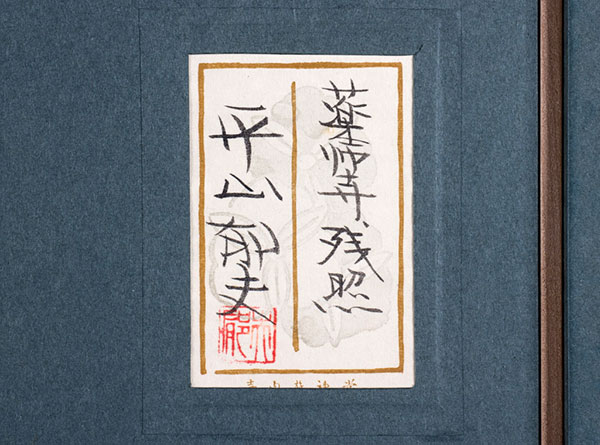 薬師寺、残照
平山郁夫